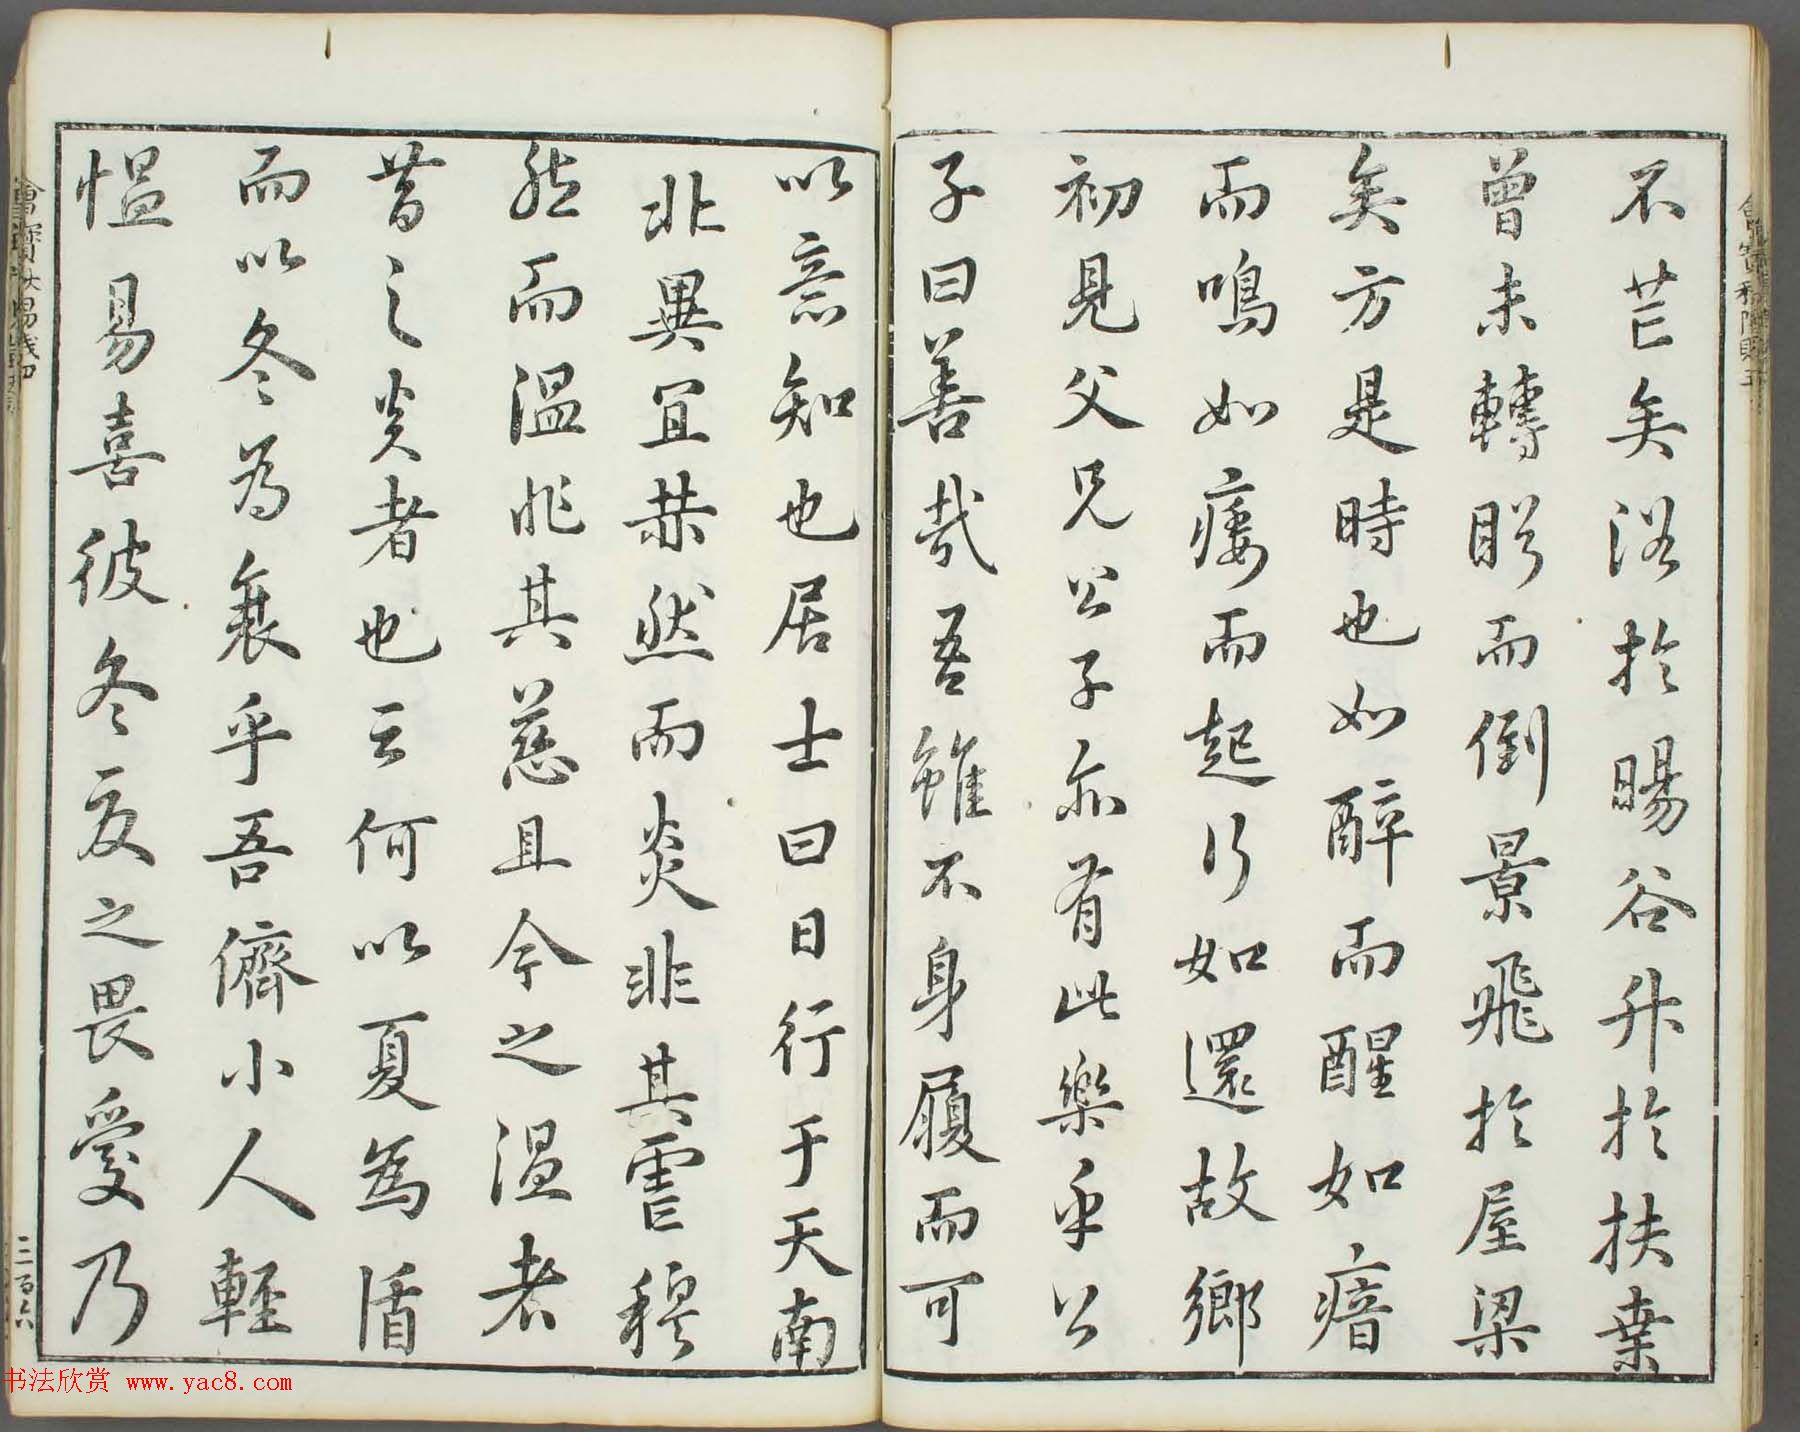 不芒矣浴於暘谷升於扶桒
曾未轉盼而倒景飛於屋梁
矣方是時也如醉而醒如瘖
而鳴如痿而起行如還故鄉
初見父兄公子亦有此樂乎公
子曰善哉吾雖不身履而可
以意知也居士曰日行于天南
北異宜赫然而炎非其虐穆
然而溫非其慈且今之溫者
昔之炎者也云何以夏為盾
而以冬為衰乎吾儕小人輕
愠易喜彼冬夏之畏愛乃
三百六
书法欣赏 www.yac8.com